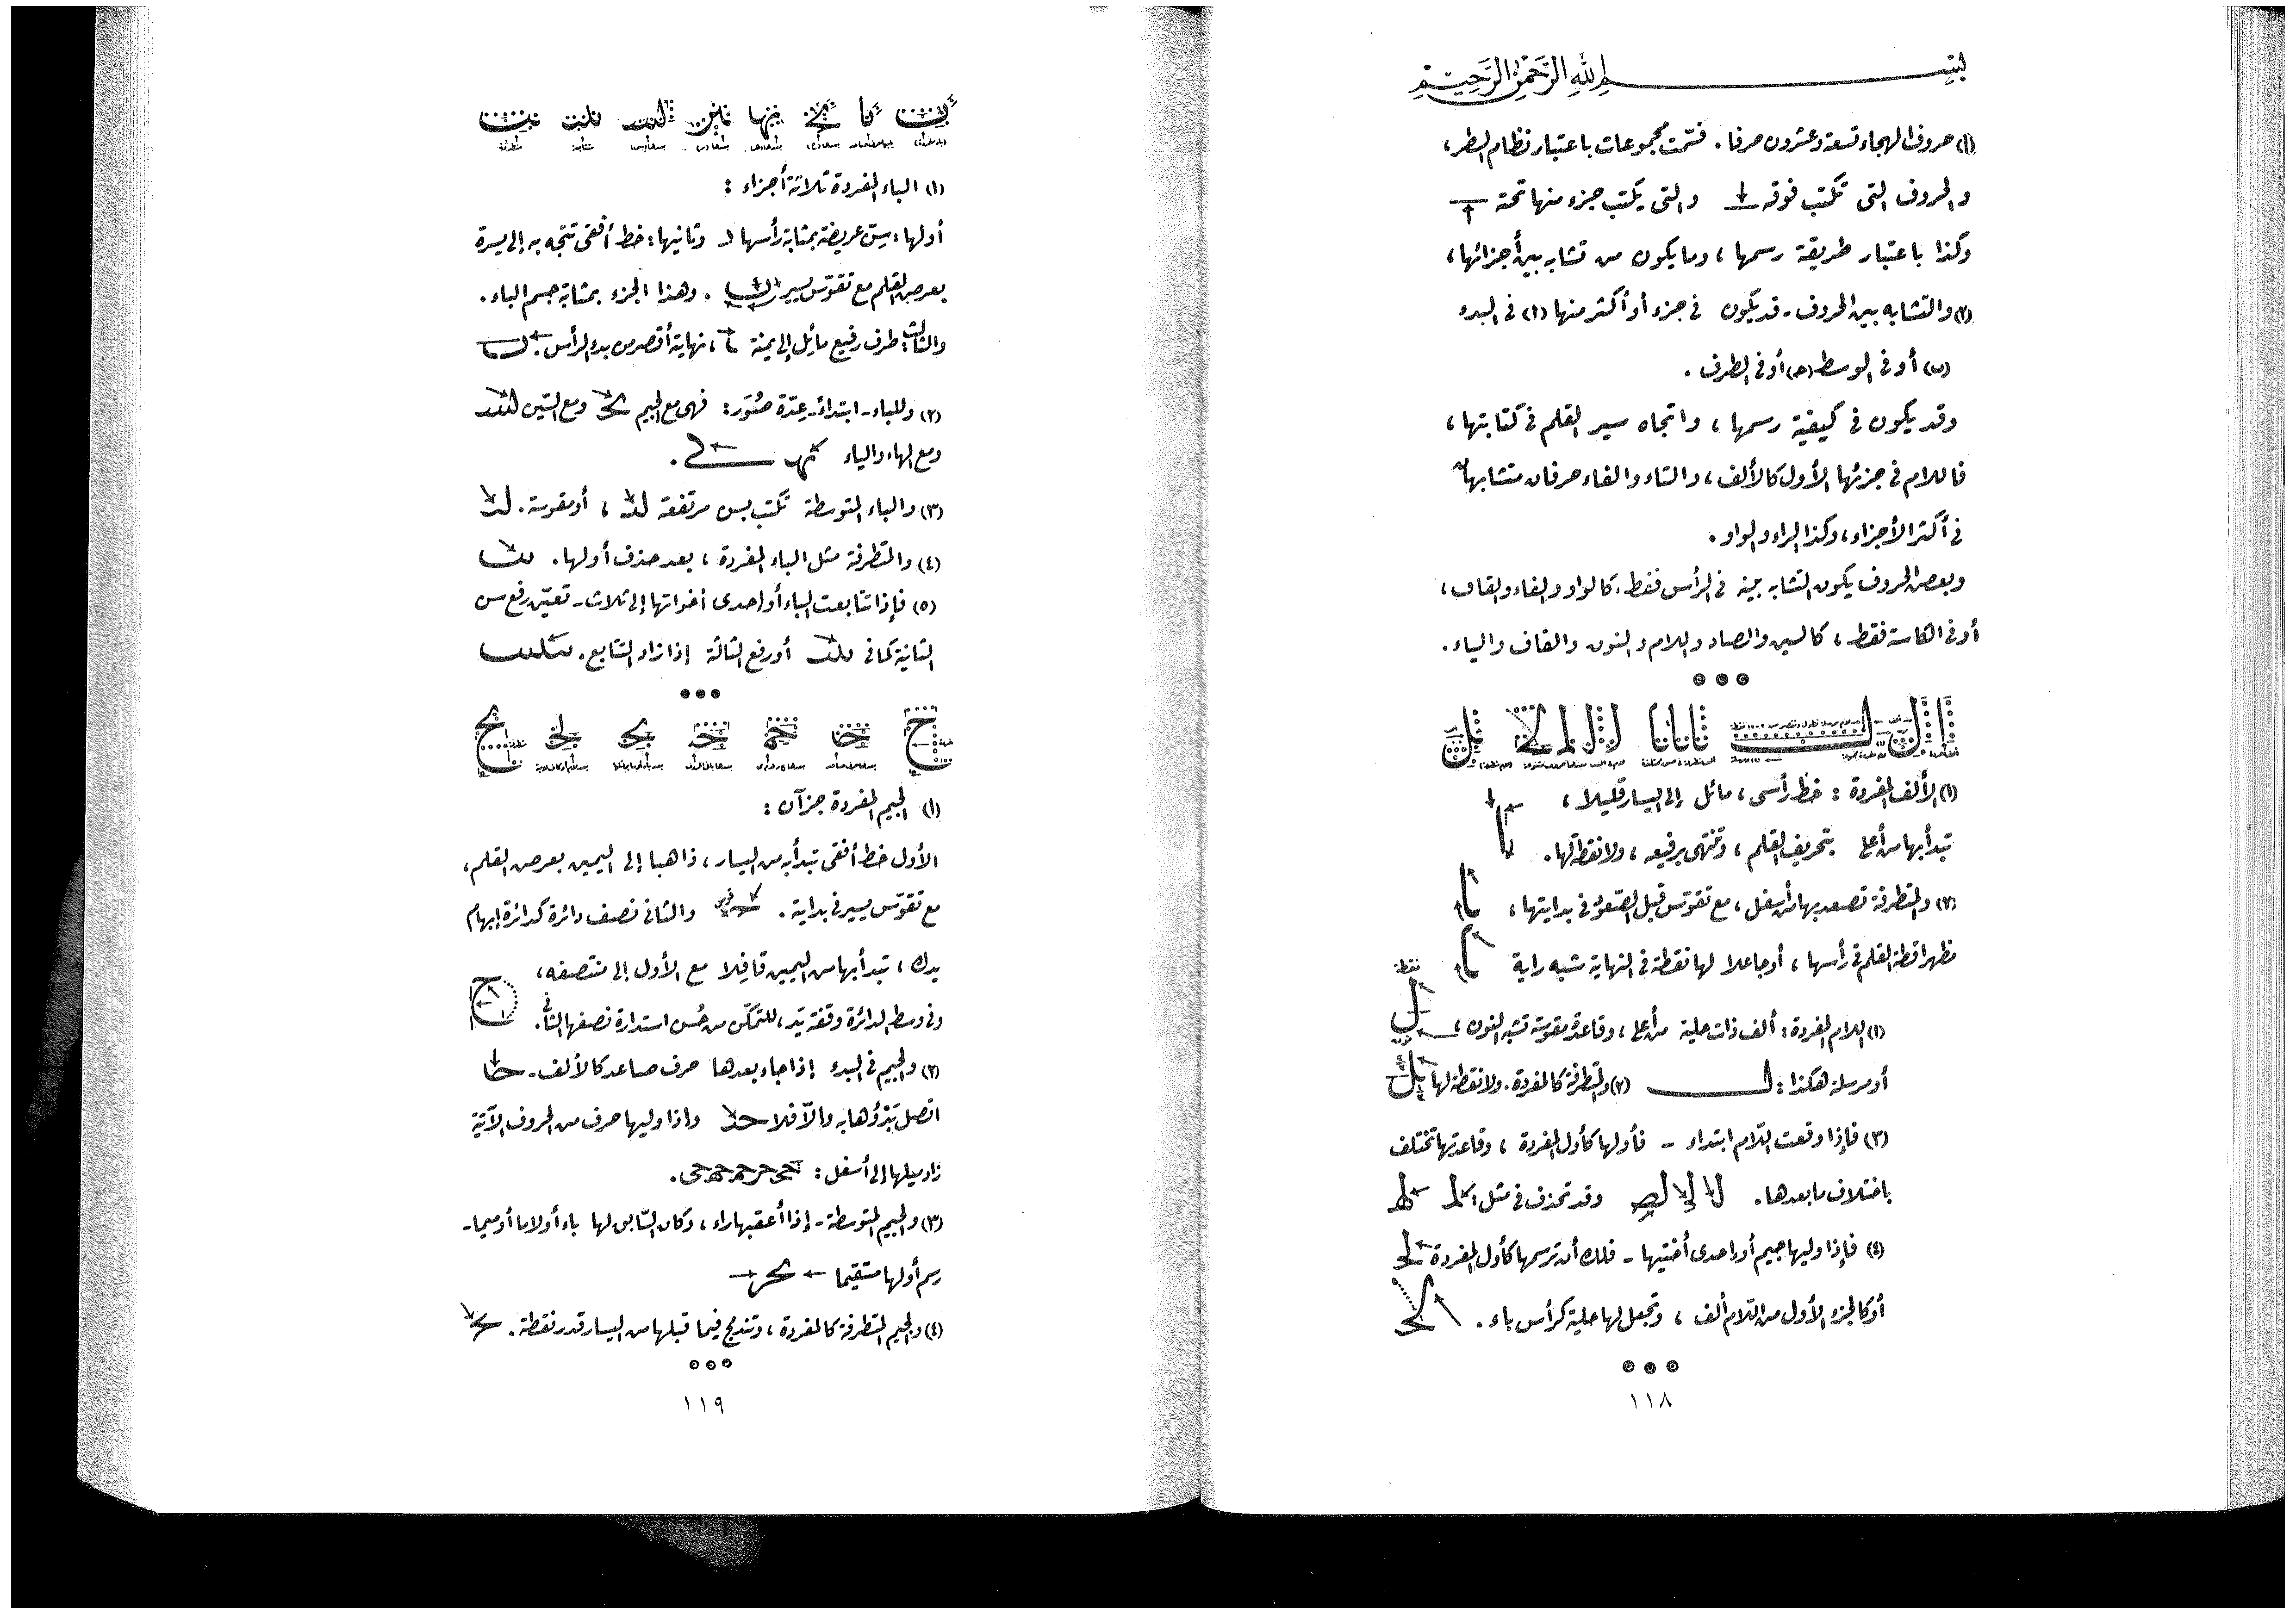 بسم الله الرحمن الرحيم
(١) حروف الهجاء تسعة وعشرون حرفا . قسّمت مجموعات باعتبار نظام السطر ،
والحروف التى تكتب فوقه والتى يكتب جزء منها تحته
وكذا باعتبار طريقة رسمها ، وما يكون من تشابه بين أجزائها ،
(٢) والتشابه بين الحروف - قد يكون فى جزء أو أكثر منها (١) فى البدء
(ب) أو فى الوسط (ح) أو فى الطرف .
وقد يكون فى كيفية رسمها ، واتجاه سير القلم فى كتابتها ،
فاللام فى جزئها الأول كالألف ، والتاء والفاء حرفان متشابهان
فى أكثر الأجزاء ، وكذا الراء والواو .
وبعض الحروف يكون التشابه بينه فى الرأس فقط ، كالواو والفاء والقاف ،
أو فى الكاسة فقط ، كالسين والصاد واللام والنون والقاف والياء .
(١) الألف المفردة : خط رأسى ، مائل إلى اليسار قليلا ،
تبدأ بها من أعلى بتحريف القلم ، وتنتهى برفيعه ، ولا نقطة لها .
(٢) والمتطرفة تصعد بها من أسفل ، مع تقوّس قبل الصّعود فى بدايتها ،
مظهرا قطة القلم فى رأسها ، أو جاعلا لها نقطة فى النهاية شبه راية
نقطة
(١) اللام المفردة : ألف ذات حلية من أعلى ، وقاعدة مقوسة تشبه النون ،
أو مرسلة هكذا : ل (٢) والمتطرفة كالمفردة . ولا نقطة لها
(٣) فإذا وقعت اللّام ابتداء - فأولها كأول المفردة ، وقاعدتها تختلف
باختلاف ما بعدها . وقد تحذف فى مثل :
(٤) فإذا وليها جيم أو احدى أختيها - فلك أن ترسمها كأول المفردة
أو كالجزء الأول من اللّام ألف ، وتجعل لها حلية كرأس باء .
١١٨
(١) الباء المفردة ثلاثة أجزاء :
أولها : سِنّ عريضة بمثابة رأسها وثانيها : خط أفقى تتجه به إلى يسرة
بعرض القلم مع تقوّس يسير . وهذا الجزء بمثابة جسم الباء .
والثالث : طرف رفيع مائل إلى يمنة ، نهايته أقصر من بدء الرأس .
(٢) وللباء - ابتداءً - عِدّة صُوَر : فهى مع الجيم ومع السّين
ومع الهاء والياء
(٣) والباء المتوسطة تكتب بسن مرتفعة ، أو مقوسة .
(٤) والمتطرفة مثل الباء المفردة ، بعد حذف أولها .
(٥) فإذا تتابعت الباء أو احدى أخواتها إلى ثلاث - تعيّن رفع سن
الثانية كما فى أو رفع الثالثة إذا زاد التتابع .
(١) الجيم المفردة جزآن :
الأول خط أفقى تبدأ به من اليسار ، ذاهبا إلى اليمين بعرض القلم ،
مع تقوّس يسير فى بداية . والثانى نصف دائرة كدائرة إبهام
يدك ، تبدأ بها من اليمين قافلا مع الأول إلى منتصفه ،
وفى وسط الدائرة وقفة يَد ، للتمكّن من حُسن استدارة نصفها الثانى .
(٢) والجيم فى البدء إذا جاء بعدها حرف صاعد كالألف -
اتصل بَدْؤُها به وإلّا فلا واذا وليها حرف من الحروف الآتية
زاد ميلها إلى أسفل :
(٣) والجيم المتوسطة - إذا أعقبها راء ، وكان السّابق لها باء أو لاما أو ميما -
رسم أولها مستقيما
(٤) والجيم المتطرفة كالمفردة ، وتندمج فيما قبلها من اليسار قدر نقطة .
١١٩